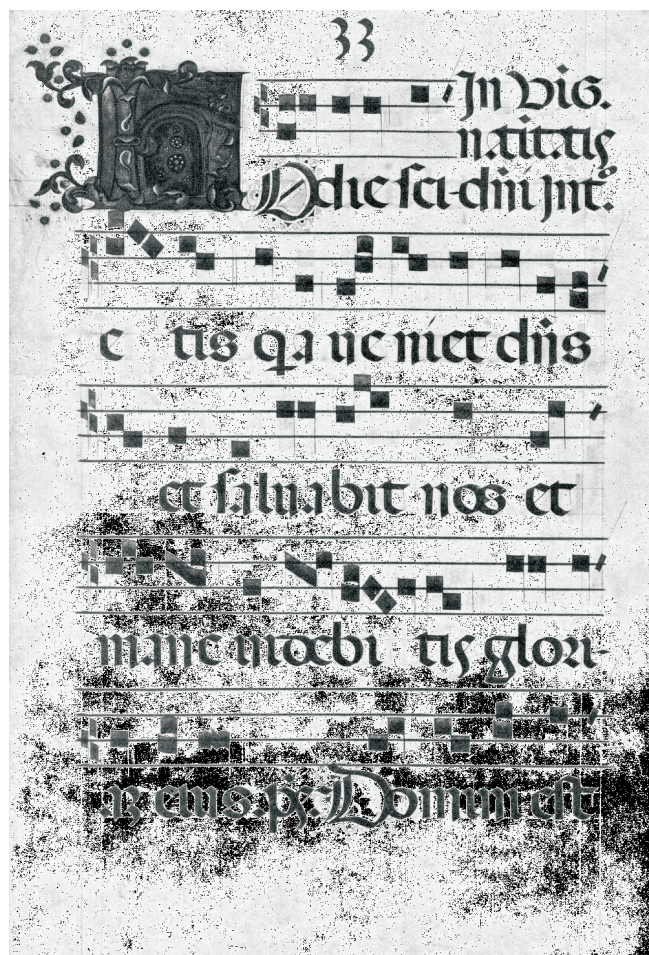 33
In vig.
natitatis
HOdie sci-dñi Int.
e tis qa ue niet dñs
et saluabit nos et
mane uidebi tis glori-
aʒ eius. ps. Domini est